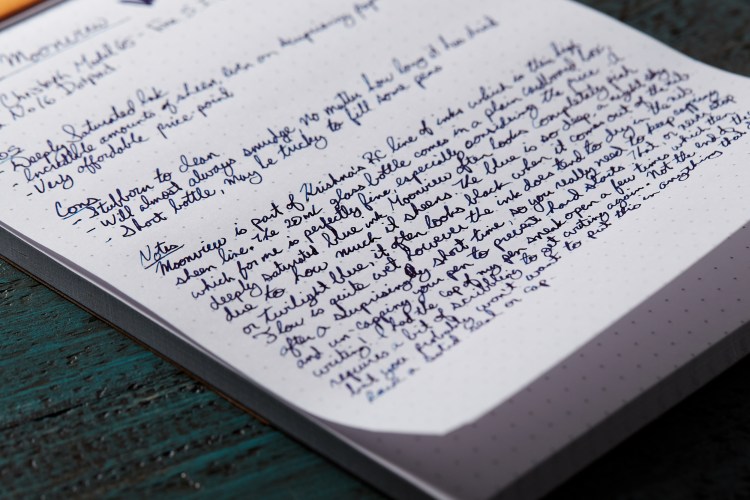 Moonview
Christoph Model 65 - Fine
No 16 Dotpad
- Deeply Saturated Ink
- Incredible amounts of sheen even on surprising paper
- Very affordable price-point
Cons
- Stubborn to clean
- Will almost always smudge no matter how long it has dried
- Short bottle, may be tricky to fill some pens
Notes
Moonview is part of Krishna's RC line of inks which is their high
sheen line. The 20mL glass bottle comes in a plain cardboard box,
which for me is perfectly fine, especially considering the price. A
deeply saturated blue ink, Moonview often looks completely pink
due to how much it sheens. The blue is so deep, a night sky
or twilight blue, it often looks black when it comes out of the nib.
Flow is quite wet, however the ink does tend to dry in the nib
after a surprisingly short time, so you really need to keep capping
and un capping your pen to prevent hard starts that or never stop
writing! I had the cap of my pen sneak open a few times which then
requires a bit of scribbling to get writing again. Not the end of the
but you probably won't want to put this in anything that
have a good seal on cap